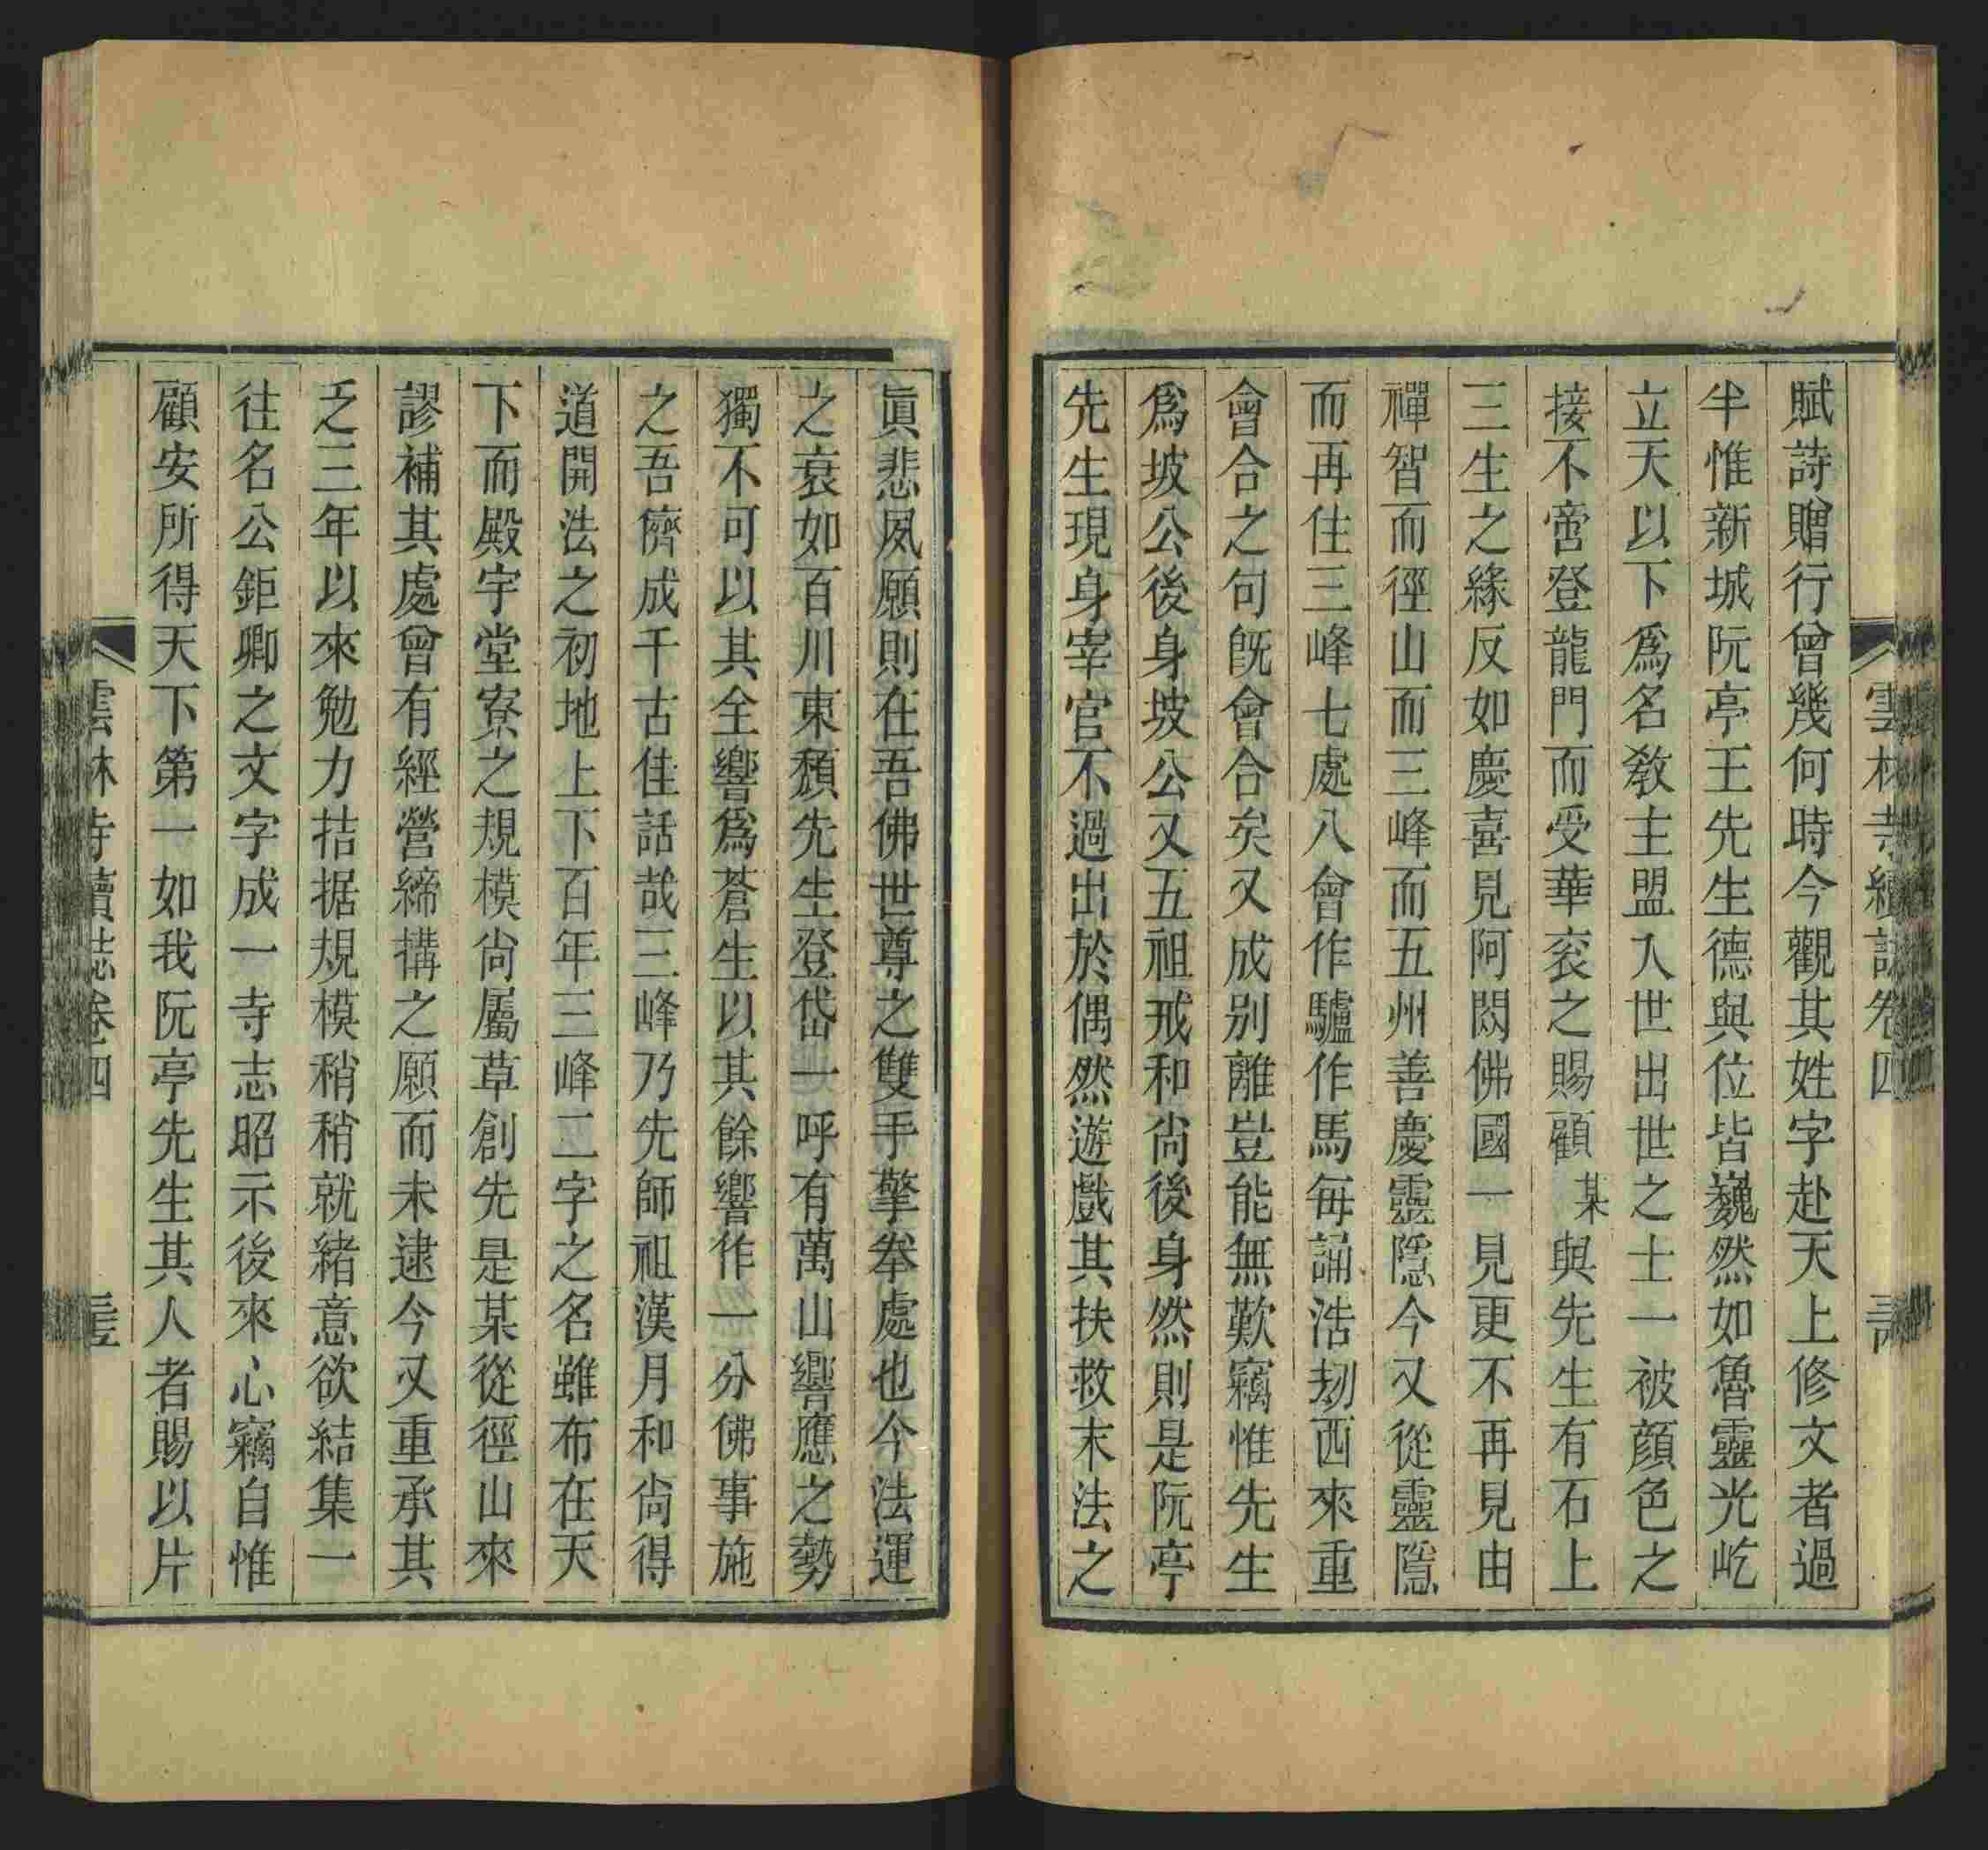 雲林寺續誌卷四
賦詩贈行曾幾何時今觀其姓字赴天上修文者過
半惟新城阮亭王先生德與位皆巍然如魯靈光屹
立天以下爲名敎主盟入世出世之士一被顔色之
接不啻登龍門而受華衮之賜顧某與先生有石上
三生之緣反如慶喜見阿閦佛國一見更不再見由
禪智而徑山而三峰而五州善慶靈隱今又從靈隱
而再住三峰七處八會作驢作馬每誦浩刼西來重
會合之句旣會合矣又成别離豈能無歎竊惟先生
爲坡公後身坡公又五祖戒和尙後身然則是阮亭
先生現身宰官不過出於偶然遊戲其扶救末法之
眞悲夙願則在吾佛世尊之雙手擎拳處也今法運
之衰如百川東頽先生登岱一呼有萬山響應之勢
獨不可以其全響爲蒼生以其餘響作一分佛事施
之吾儕成千古佳話哉三峰乃先師祖漢月和尙得
道開法之初地上下百年三峰二字之名雖布在天
下而殿宇堂寮之規模尙屬草創先是某從徑山來
謬補其處曾有經營締搆之願而未逮今又重承其
乏三年以來勉力拮据規模稍稍就緒意欲結集一
往名公鉅卿之文字成一寺志昭示後來心竊自惟
顧安所得天下第一如我阮亭先生其人者賜以片
雲林寺續誌卷四